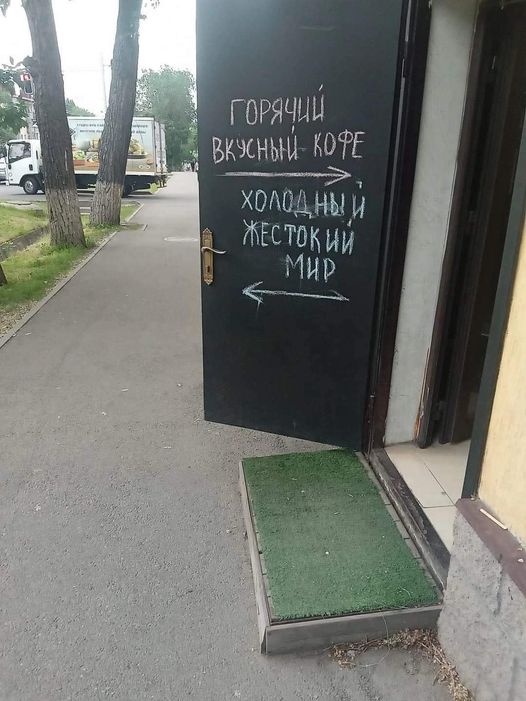 ГОРЯЧИЙ
ВКУСНЫЙ КОФЕ
ХОЛОДНЫЙ
ЖЕСТОКИЙ
МИР